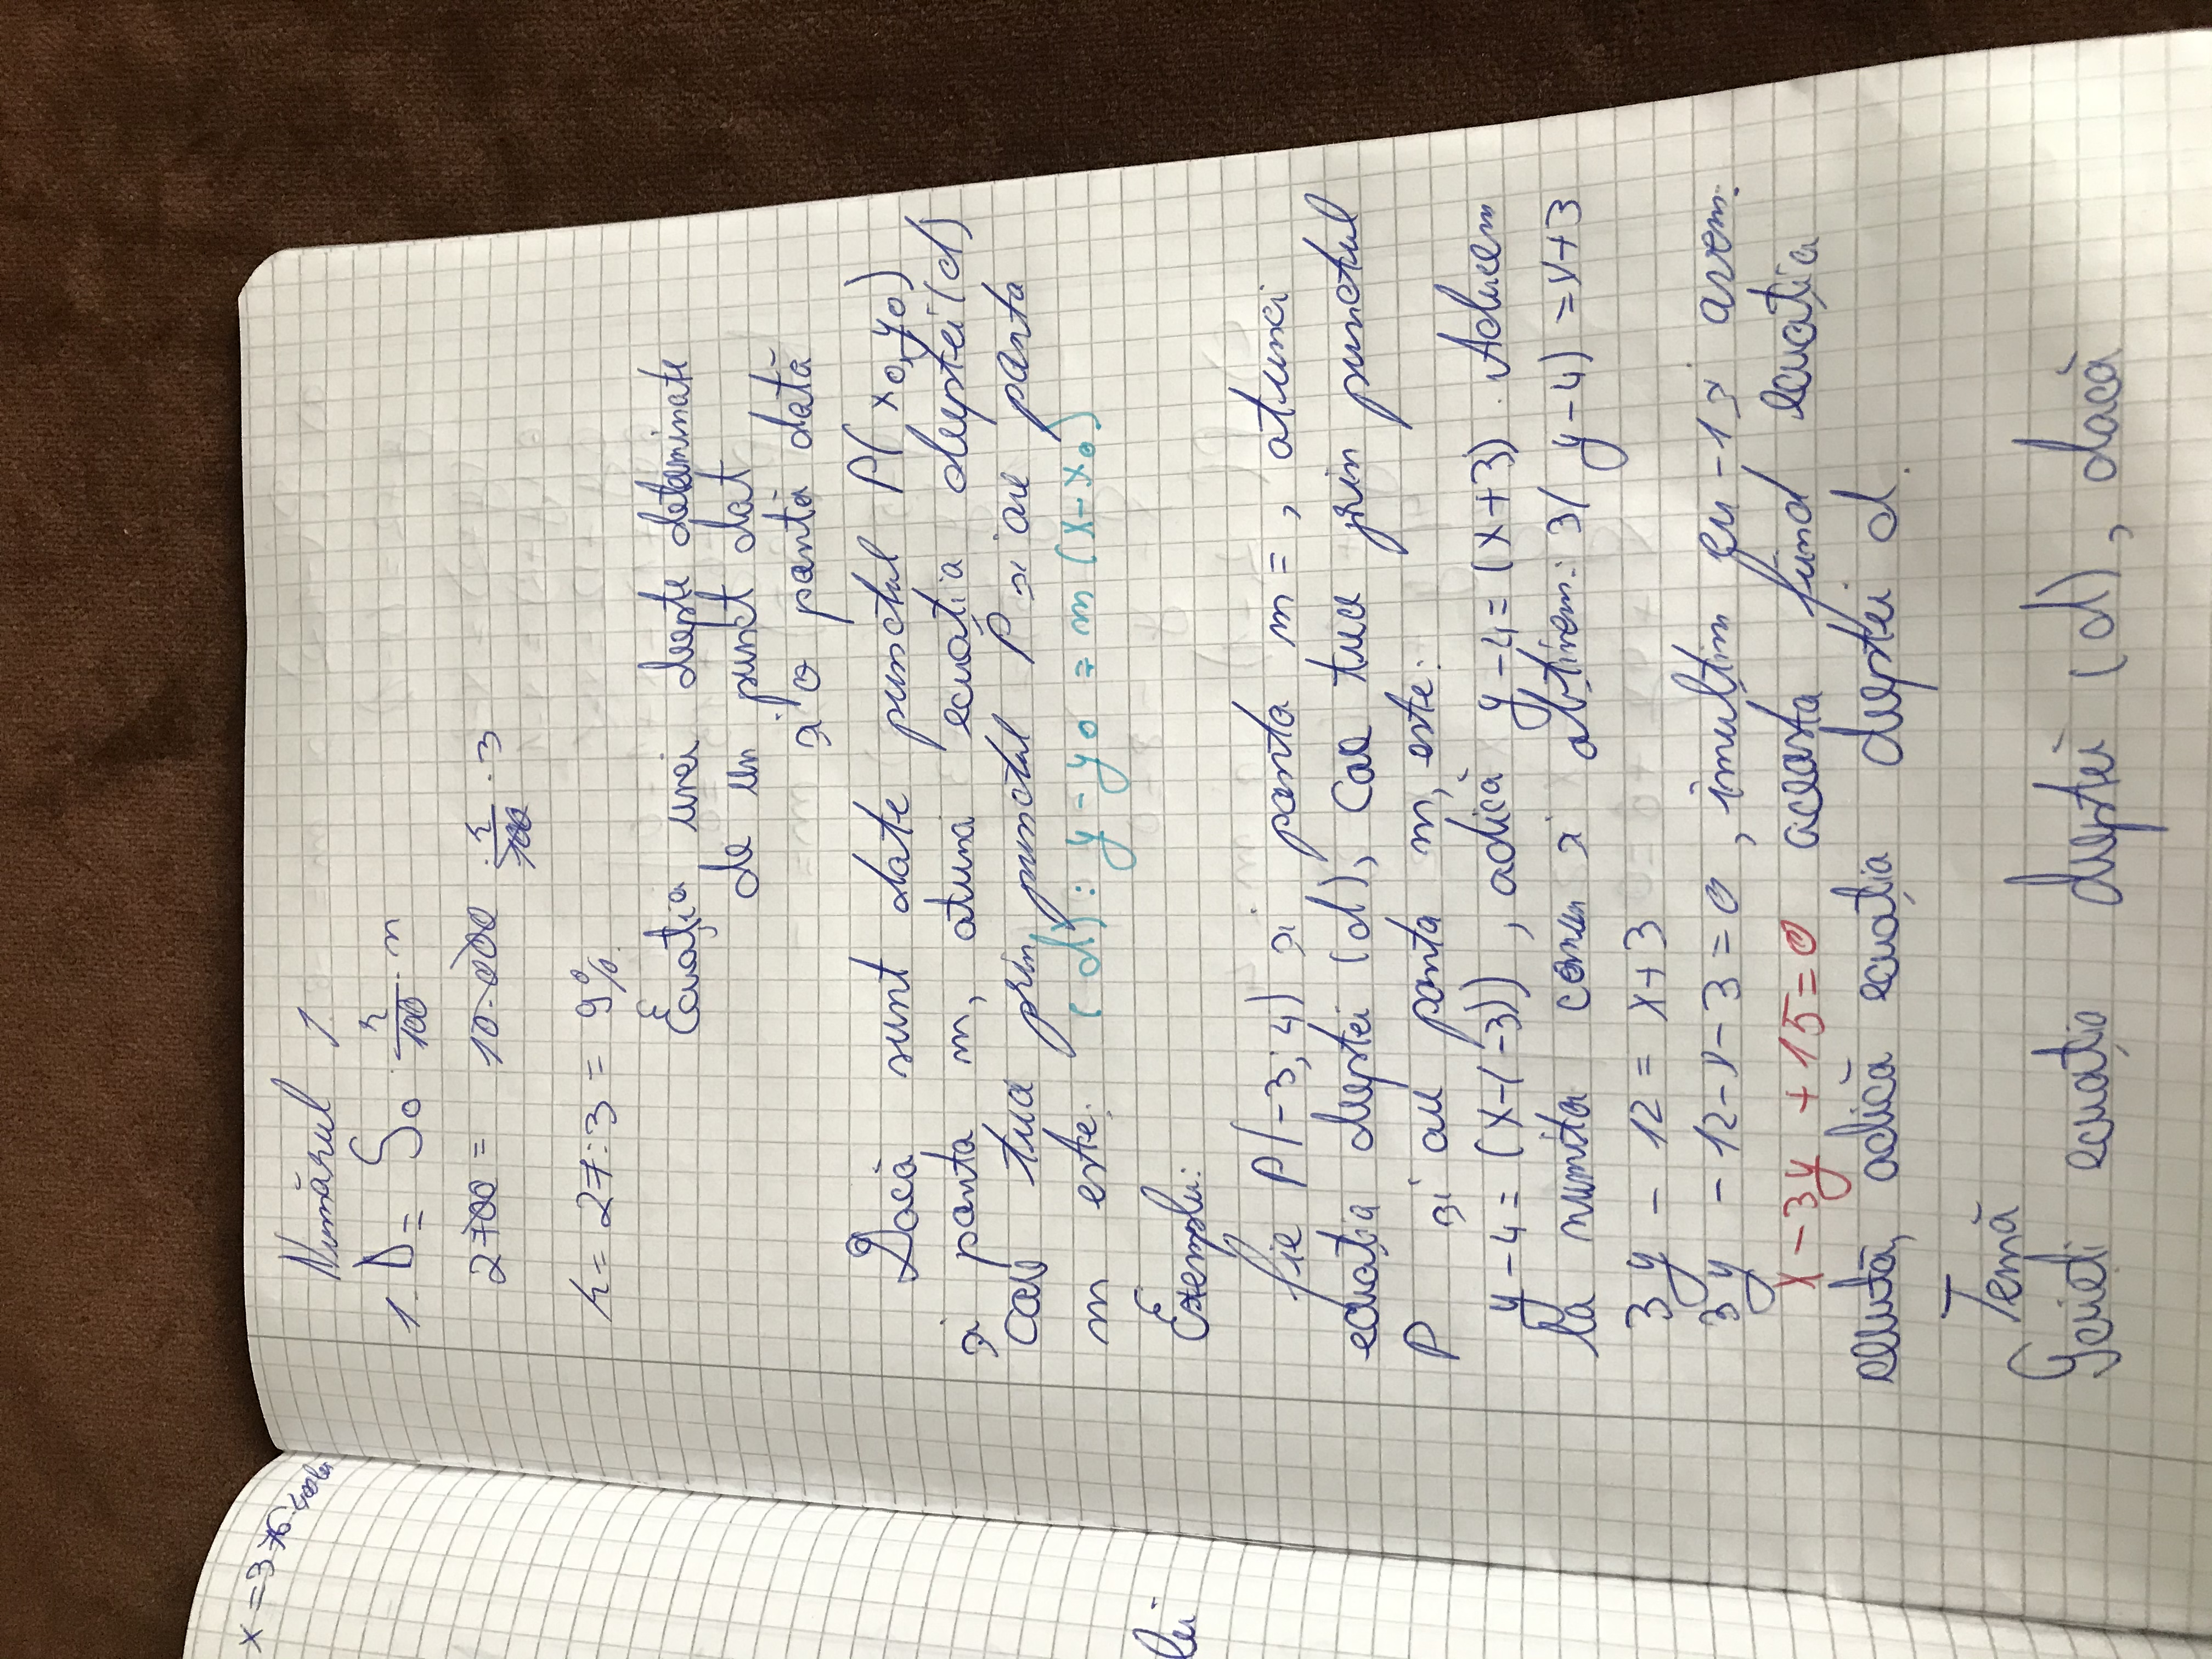 x = 376.400lei
lei
Numărul 1
1. D = S0 r/100 · n
2700 = 10.000 · r/100 · 3
r = 27:3 = 9%.
Ecuația unei drepte determinate
de un punct dat
și o pantă dată
Dacă sunt date punctul P(x0,y0)
și panta m, atunci ecuația dreptei (d)
care trece prin punctul P și are panta
m este: (d): y-y0 = m(x-x0)
Exemplu:
fie P(-3;4) și panta m= , atunci
ecuația dreptei (d), care trece prin punctul
P și are panta m, este:
y-4=(x-(-3)), adică y-4=(x+3). Aducem
la numitor comun și obținem: 3(y-4)=x+3
3y-12=x+3
3y-12-x-3=0, înmulțim cu -1 și avem:
x-3y+15=0 aceasta fiind ecuația
cerută, adică ecuația dreptei d.
Temă
Scrieți ecuația dreptei (d), dacă